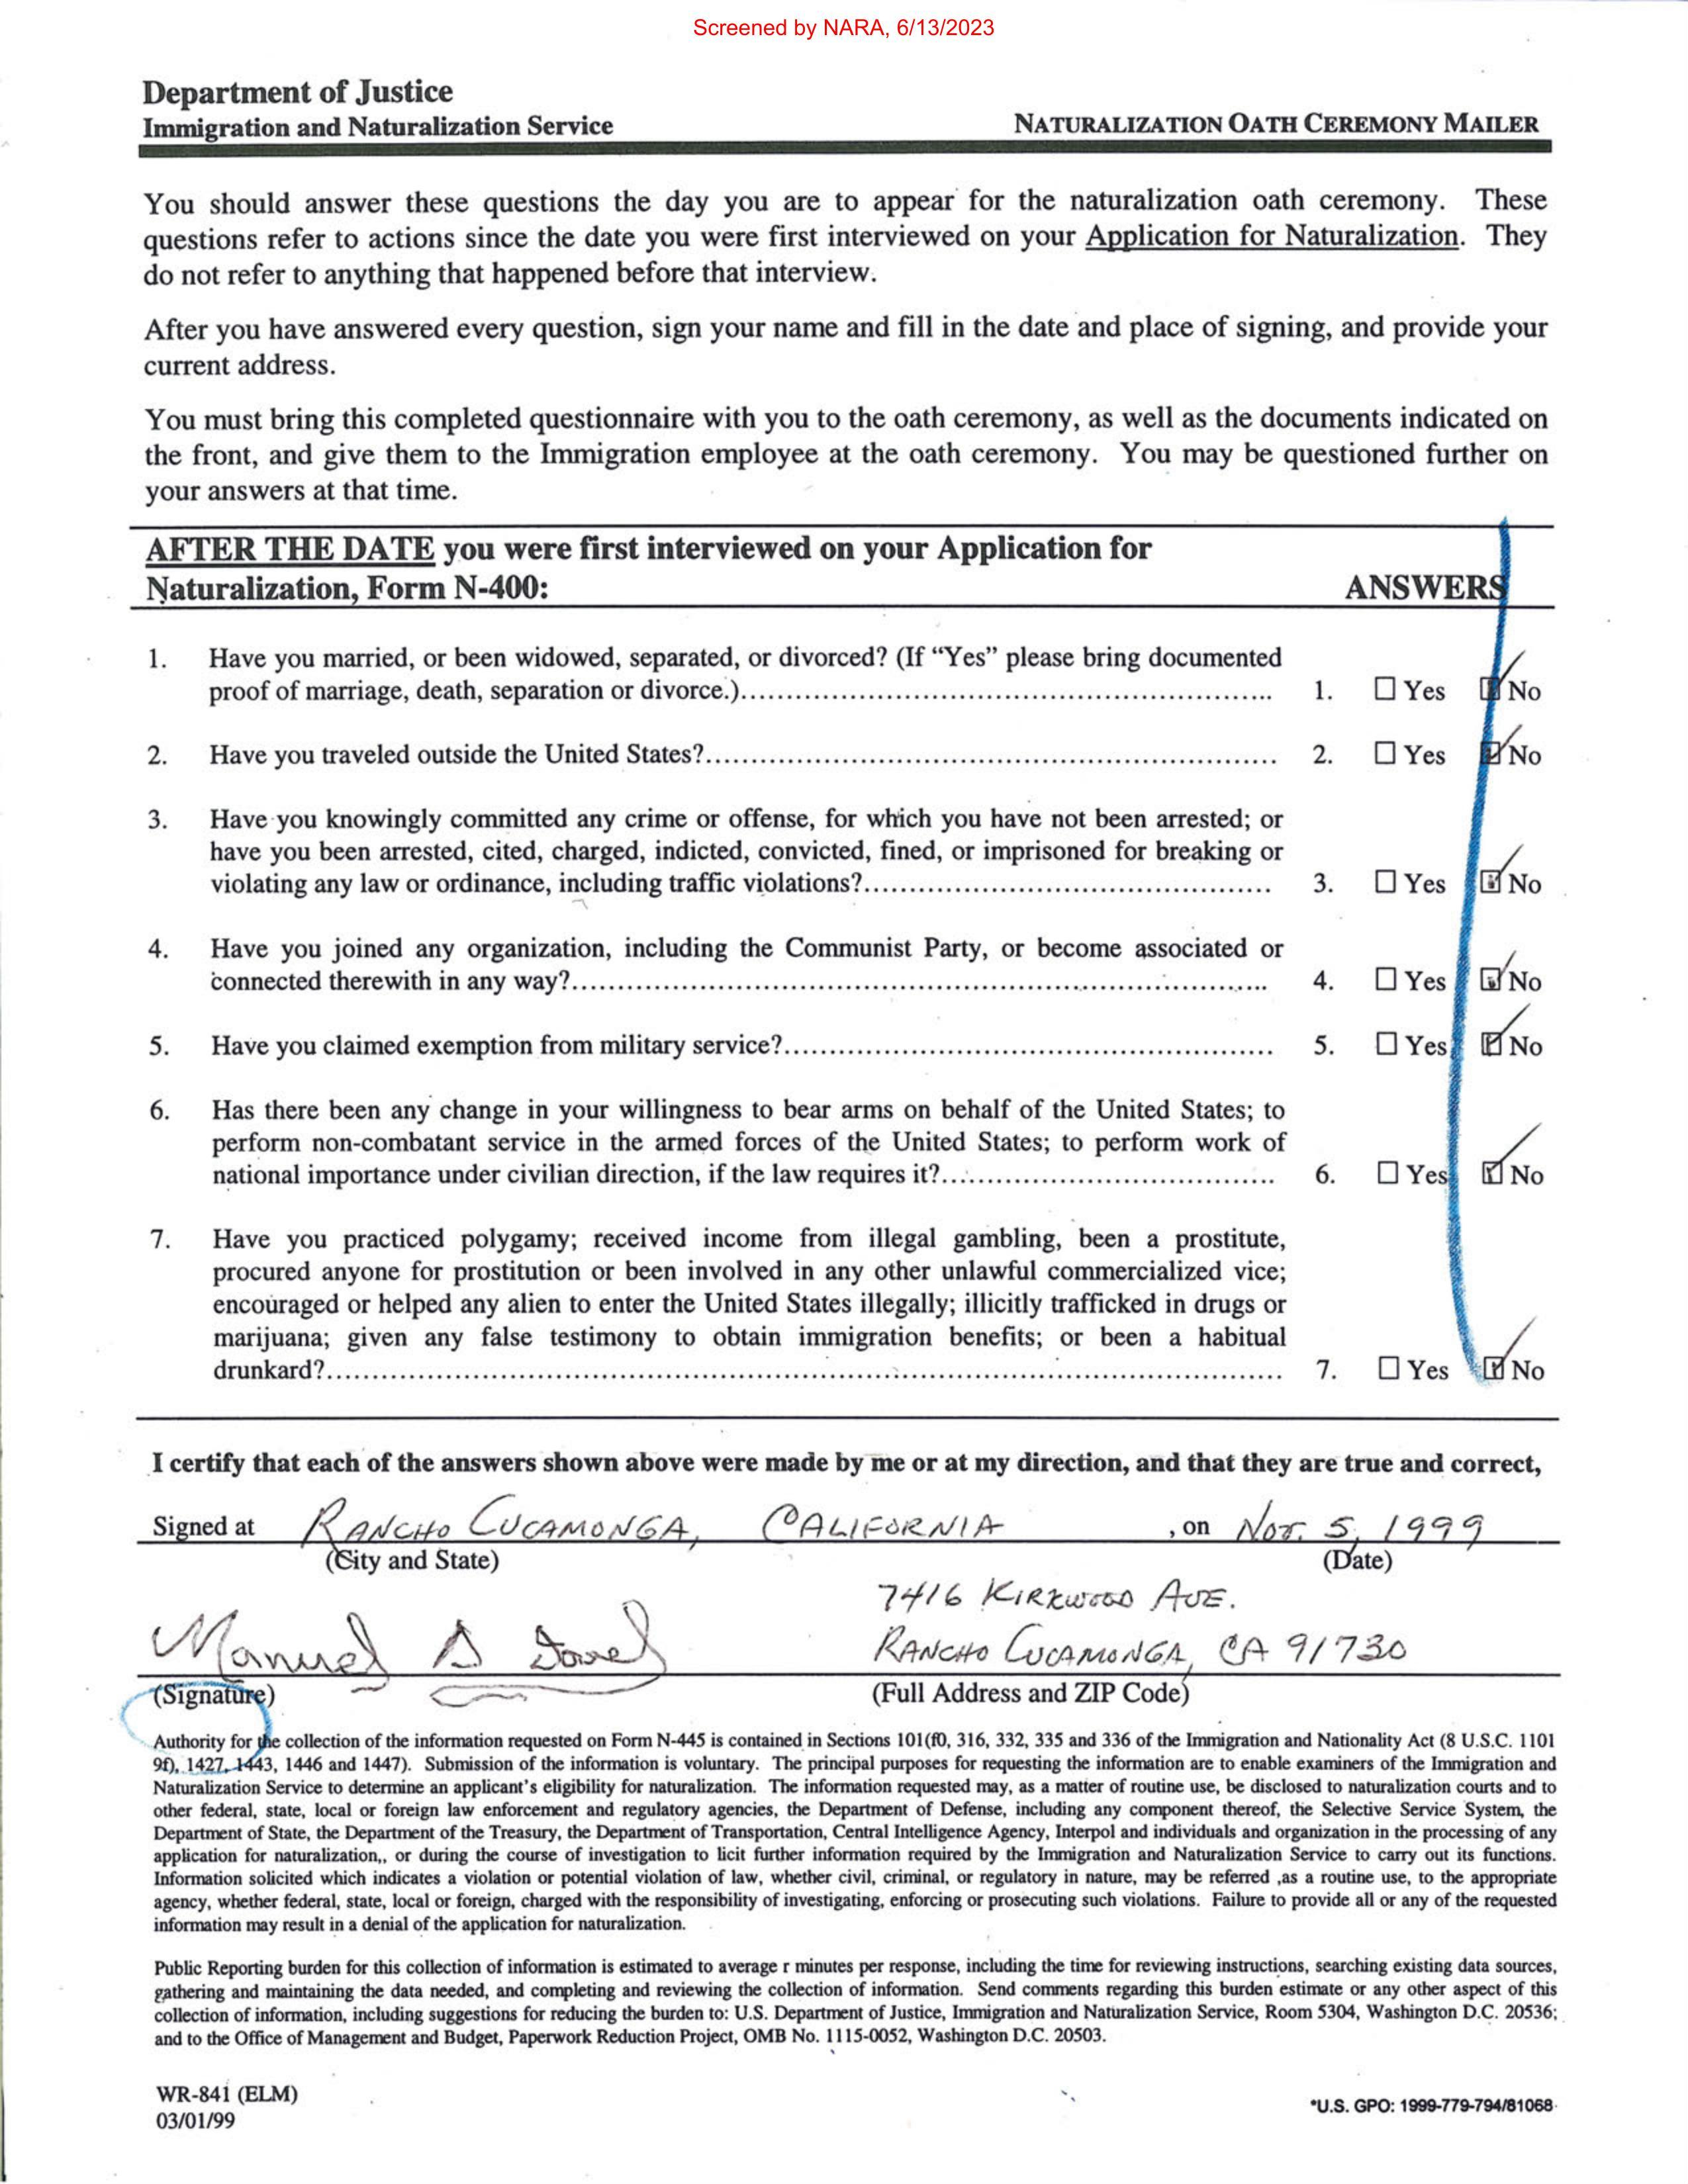 Screened by NARA, 6/13/2023
Department of Justice
Immigration and Naturalization Service
NATURALIZATION OATH CEREMONY MAILER
You should answer these questions the day you are to appear for the naturalization oath ceremony. These
questions refer to actions since the date you were first interviewed on your Application for Naturalization. They
do not refer to anything that happened before that interview.
After you have answered every question, sign your name and fill in the date and place of signing, and provide your
current address.
You must bring this completed questionnaire with you to the oath ceremony, as well as the documents indicated on
the front, and give them to the Immigration employee at the oath ceremony. You may be questioned further on
your answers at that time.
AFTER THE DATE you were first interviewed on your Application for
Naturalization, Form N-400: ANSWERS
1. Have you married, or been widowed, separated, or divorced? (If “Yes” please bring documented
proof of marriage, death, separation or divorce.)........ 1. ☐ Yes ☑ No
2. Have you traveled outside the United States?........ 2. ☐ Yes ☑ No
3. Have you knowingly committed any crime or offense, for which you have not been arrested; or
have you been arrested, cited, charged, indicted, convicted, fined, or imprisoned for breaking or
violating any law or ordinance, including traffic violations?........ 3. ☐ Yes ☑ No
4. Have you joined any organization, including the Communist Party, or become associated or
connected therewith in any way?........ 4. ☐ Yes ☑ No
5. Have you claimed exemption from military service?........ 5. ☐ Yes ☑ No
6. Has there been any change in your willingness to bear arms on behalf of the United States; to
perform non-combatant service in the armed forces of the United States; to perform work of
national importance under civilian direction, if the law requires it?........ 6. ☐ Yes ☑ No
7. Have you practiced polygamy; received income from illegal gambling, been a prostitute,
procured anyone for prostitution or been involved in any other unlawful commercialized vice;
encouraged or helped any alien to enter the United States illegally; illicitly trafficked in drugs or
marijuana; given any false testimony to obtain immigration benefits; or been a habitual
drunkard?........ 7. ☐ Yes ☑ No
I certify that each of the answers shown above were made by me or at my direction, and that they are true and correct,
Signed at RANCHO CUCAMONGA, CALIFORNIA , on Nov. 5, 1999
(City and State) (Date)
7416 KIRKWOOD AVE.
Manuel RANCHO CUCAMONGA, CA 91730
(Signature) (Full Address and ZIP Code)
Authority for the collection of the information requested on Form N-445 is contained in Sections 101(f0, 316, 332, 335 and 336 of the Immigration and Nationality Act (8 U.S.C. 1101
9f), 1427, 1443, 1446 and 1447). Submission of the information is voluntary. The principal purposes for requesting the information are to enable examiners of the Immigration and
Naturalization Service to determine an applicant’s eligibility for naturalization. The information requested may, as a matter of routine use, be disclosed to naturalization courts and to
other federal, state, local or foreign law enforcement and regulatory agencies, the Department of Defense, including any component thereof, the Selective Service System, the
Department of State, the Department of the Treasury, the Department of Transportation, Central Intelligence Agency, Interpol and individuals and organization in the processing of any
application for naturalization,, or during the course of investigation to licit further information required by the Immigration and Naturalization Service to carry out its functions.
Information solicited which indicates a violation or potential violation of law, whether civil, criminal, or regulatory in nature, may be referred ,as a routine use, to the appropriate
agency, whether federal, state, local or foreign, charged with the responsibility of investigating, enforcing or prosecuting such violations. Failure to provide all or any of the requested
information may result in a denial of the application for naturalization.
Public Reporting burden for this collection of information is estimated to average r minutes per response, including the time for reviewing instructions, searching existing data sources,
gathering and maintaining the data needed, and completing and reviewing the collection of information. Send comments regarding this burden estimate or any other aspect of this
collection of information, including suggestions for reducing the burden to: U.S. Department of Justice, Immigration and Naturalization Service, Room 5304, Washington D.C. 20536;
and to the Office of Management and Budget, Paperwork Reduction Project, OMB No. 1115-0052, Washington D.C. 20503.
WR-841 (ELM)
03/01/99
*U.S. GPO: 1999-779-794/81068